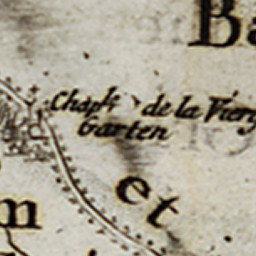 Ba
Chaple de la Vierg
Garten
et
m